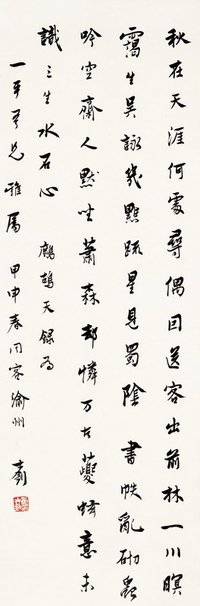 秋在天涯何處尋偶因送客出前林一川暝
靄生吳詠幾點疏星見蜀陰 書帙亂砌蟲
吟空齋人默坐蕭森却憐万古夔情意未
識三生水石心 鷓鴣天録為
一平吾兄雅屬 甲申春同客渝州